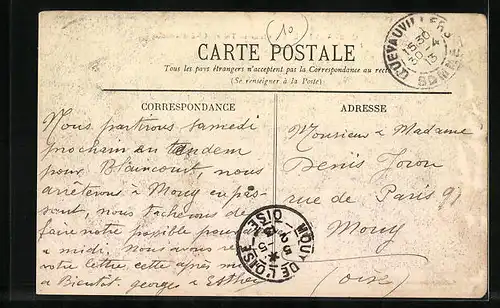 (10)
CARTE POSTALE
Tous les pays étrangers n'acceptent pas la Correspondance au recto
(Se renseigner à la Poste)
QUEVAUVILLERS
SOMME
15 30
30 4
13
CORRESPONDANCE
Nous partirons samedi
prochain en tandem
pour Bliancourt, nous
arrêterons à Mouy en pas-
sant, nous tâcherons de
faire notre possible pour
à midi. Nous avons
votre lettre, cette après
à Bientôt. georges & Esther
ADRESSE
Monsieur & Madame
Denis
rue de Paris 91
Mouy
(Oise)
MOUY DE L'OISE
OISE